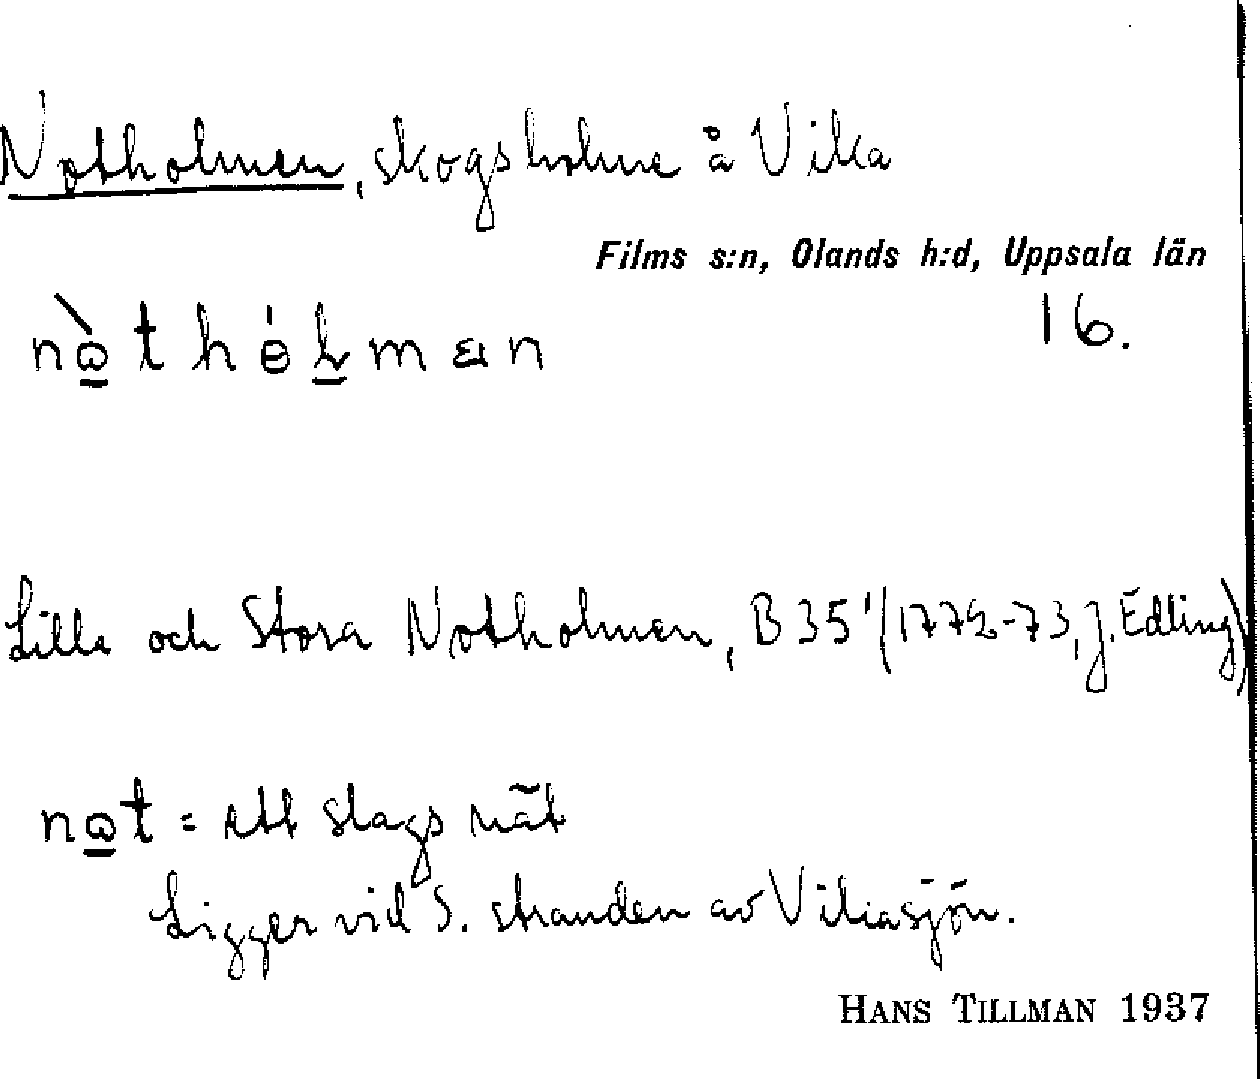 Notholmen, skogsholme å Vika
Films s:n, Olands h:d, Uppsala län
16.
Lilla och Stora Notholmen, B 35 (1772-73, J. Edling)
not = ett slags nät
Ligger vid S. stranden av Vikasjön.
HANS TILLMAN 1937